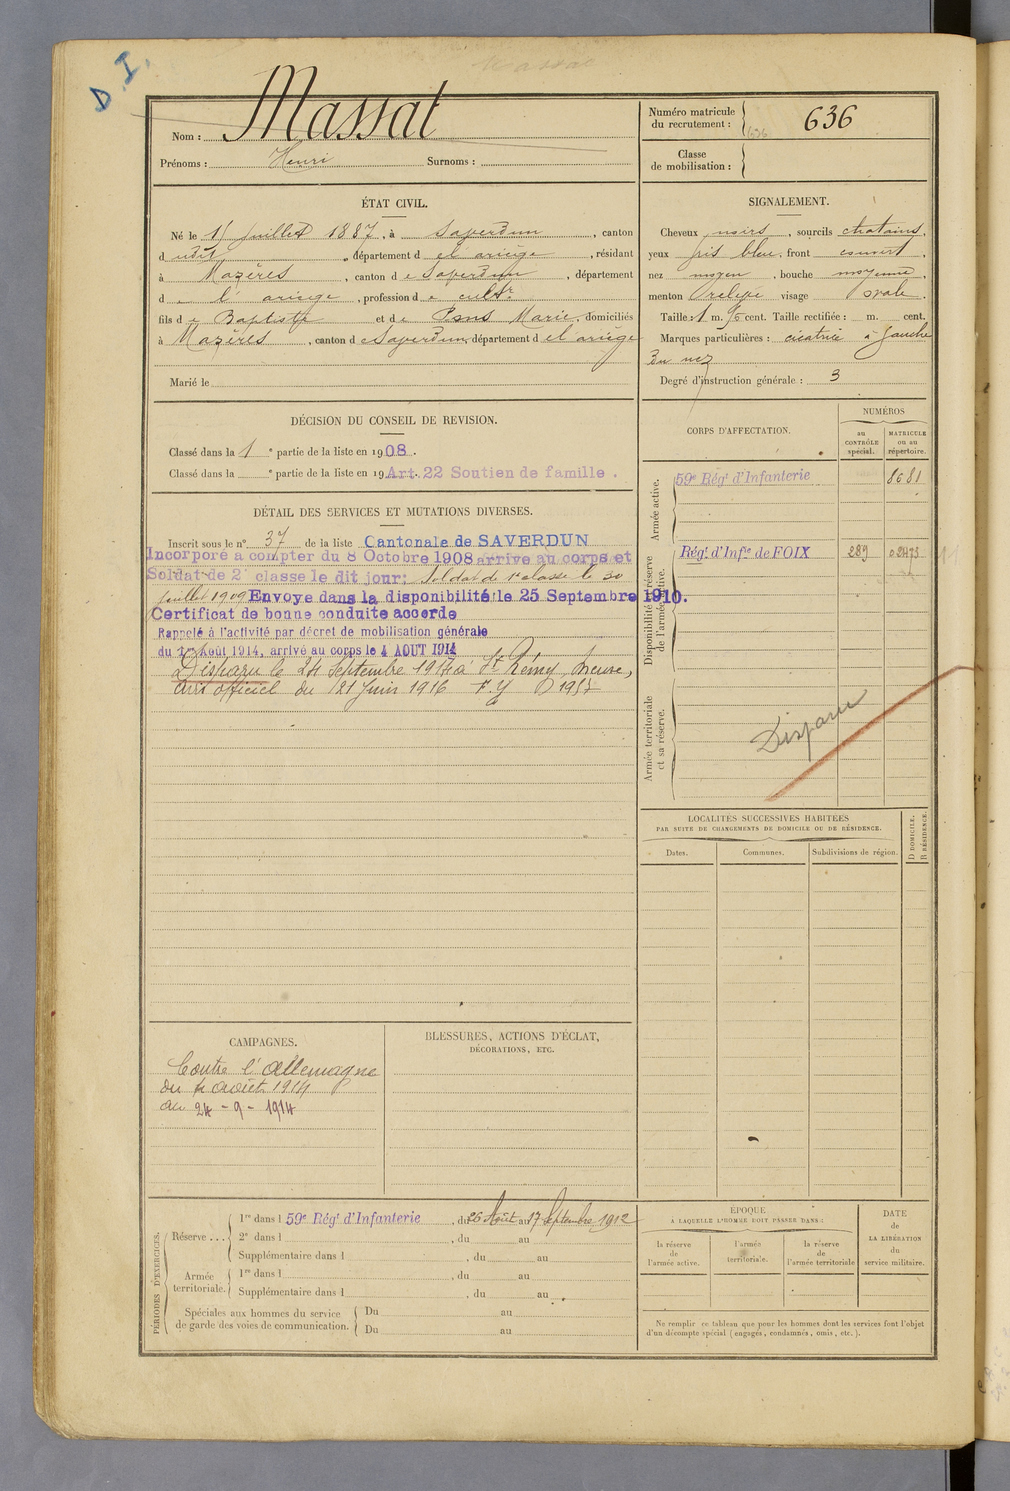 D.I.
Massat
Nom : Massat
Prénoms : Henri Surnoms :
Numéro matricule du recrutement : 636
636
Classe de mobilisation :
ÉTAT CIVIL.
Né le 15 juillet 1887, à Saverdun, canton
dudit, département de l'ariège, résidant
à Mazères, canton de Saverdun, département
de l'ariège, profession de cultr
fils de Baptiste et de Pons Marie, domiciliés
à Mazères, canton de Saverdun, département de l'ariège
Marié le
SIGNALEMENT.
Cheveux noirs, sourcils chatains,
yeux gris bleu, front couvert,
nez moyen, bouche moyenne,
menton relevé visage ovale.
Taille : 1 m. cent. Taille rectifiée : m. cent.
Marques particulières : cicatrice à gauche
du nez
Degré d'instruction générale : 3
DÉCISION DU CONSEIL DE REVISION.
Classé dans la 1e partie de la liste en 1908.
Classé dans la e partie de la liste en 19 . Art. 22 Soutien de famille.
DÉTAIL DES SERVICES ET MUTATIONS DIVERSES.
Inscrit sous le n° 37 de la liste Cantonale de SAVERDUN
Incorporé à compter du 8 Octobre 1908 arrivé au corps et
Soldat de 2e classe le dit jour; Soldat de 1e classe le 30
juillet 1909 Envoyé dans la disponibilité le 25 Septembre 1910.
Certificat de bonne conduite accordé
Rappelé à l'activité par décret de mobilisation générale
du 1er Août 1914, arrivé au corps le 4 AOUT 1914
Disparu le 24 Septembre 1914 à St Rémy, Meuse,
avis officiel du 21 juin 1916
CORPS D'AFFECTATION.
NUMÉROS
au CONTRÔLE spécial.
MATRICULE ou au répertoire.
Armée active.
59e Régt d'Infanterie 8681
Disponibilité et réserve de l'armée active.
Régt d'Infie de FOIX 289 02473
Armée territoriale et sa réserve.
Disparu
LOCALITÉS SUCCESSIVES HABITÉES
PAR SUITE DE CHANGEMENTS DE DOMICILE OU DE RÉSIDENCE.
Dates. Communes. Subdivisions de région.
D DOMICILE.
R RÉSIDENCE.
CAMPAGNES.
Contre l'allemagne
du 4 août 1914
au 24-9-1914
BLESSURES, ACTIONS D'ÉCLAT,
DÉCORATIONS, ETC.
PÉRIODES D'EXERCICES.
Réserve....
1re dans l 59e Régt d'Infanterie, du 26 Août au 17 Septembre 1912
2e dans l , du au
Supplémentaire dans l , du au
Armée territoriale.
1re dans l , du au
Supplémentaire dans l , du au .
Spéciales aux hommes du service de garde des voies de communication.
Du au
Du au
ÉPOQUE
À LAQUELLE L'HOMME DOIT PASSER DANS :
la réserve de l'armée active.
l'armée territoriale.
la réserve de l'armée territoriale
DATE
de
LA LIBÉRATION
du
service militaire.
Ne remplir ce tableau que pour les hommes dont les services font l'objet
d'un décompte spécial (engagés, condamnés, omis, etc.).